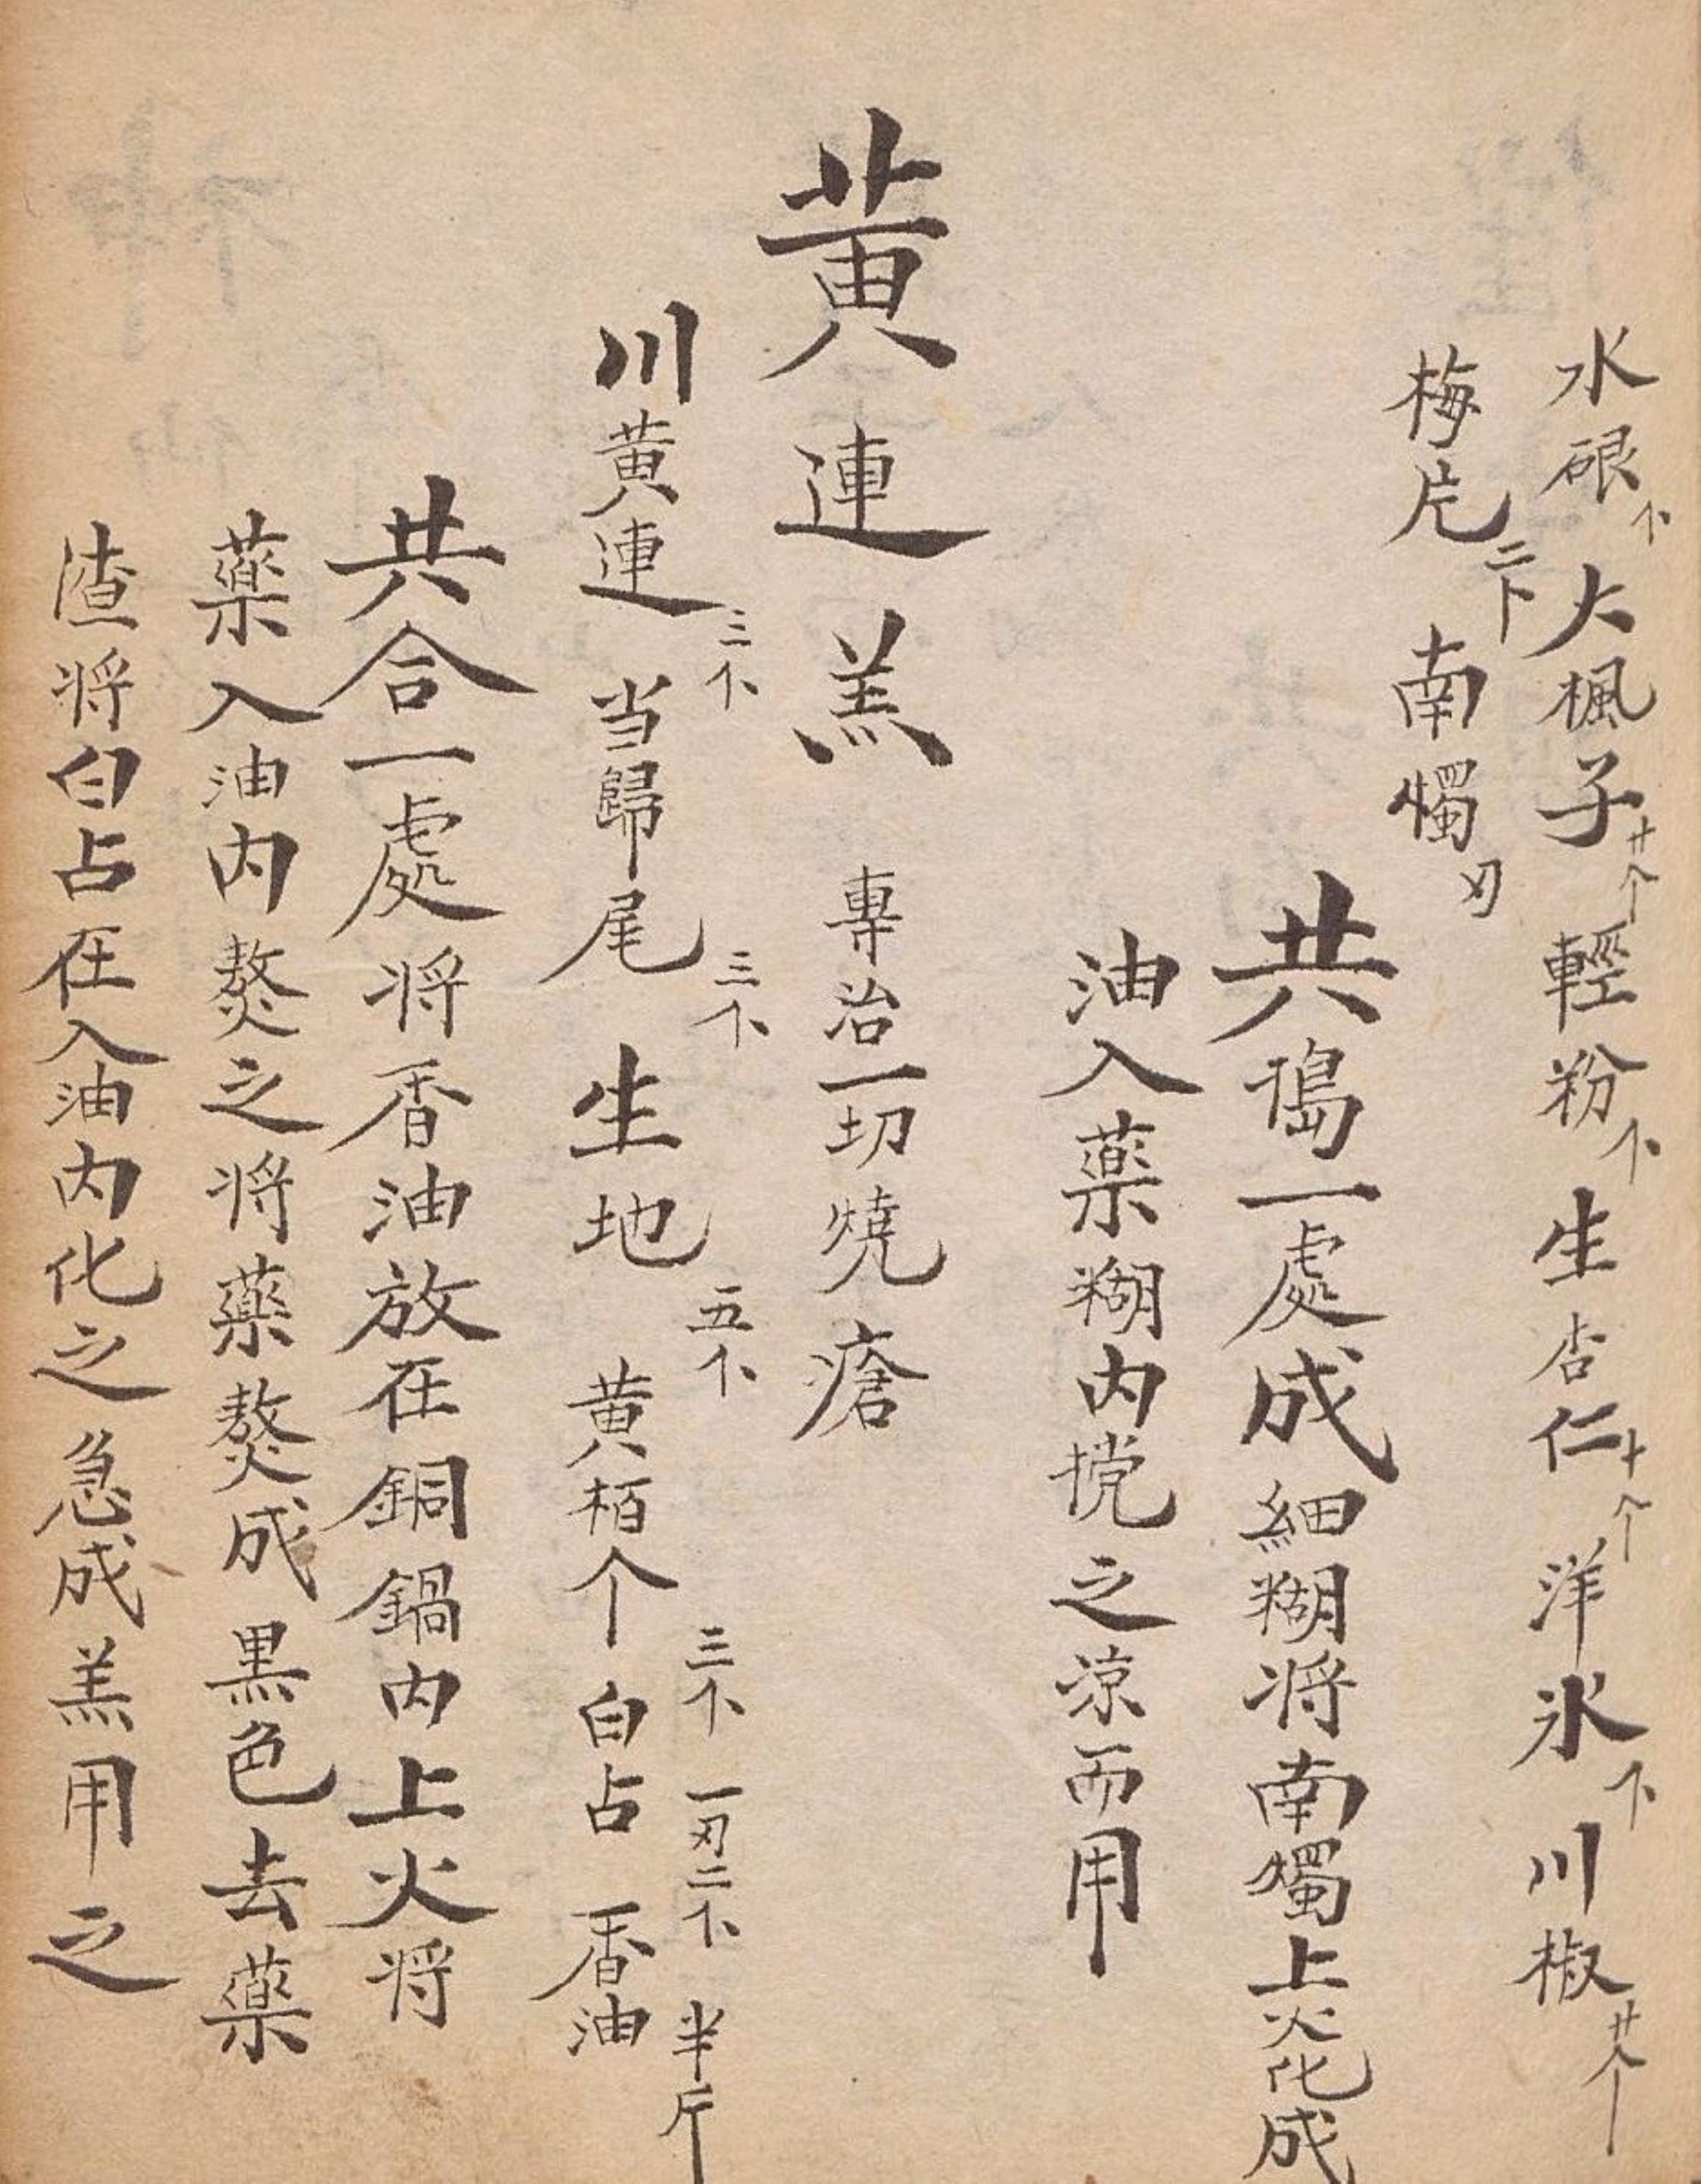 水硍 大楓子廿个 輕粉 生杏仁十个 洋氷 川椒廿个
梅片二 南燭刃
共搗一處成細糊将南燭上火化成
油入藥糊内攪之凉而用
黄連羔 專治一切燒瘡
川黄連三 当歸尾三 生地五 黄栢个三 白占一刃二 香油半斤
共合一處将香油放在銅鍋内上火将
藥入油内熬之将藥熬成黒色去藥
渣将白占在入油内化之急成羔用之